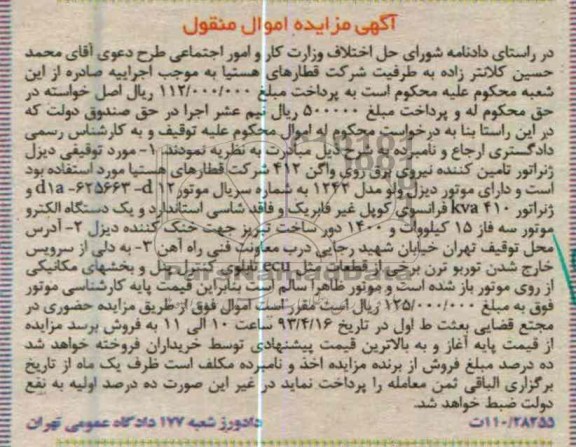 آگهی مزایده اموال منقول
در راستای دادنامه شورای حل اختلاف وزارت کار و امور اجتماعی طرح دعوی آقای محمد
حسین کلانتر زاده به طرفیت شرکت قطارهای هستیا به موجب اجراییه صادره از این
شعبه محکوم علیه محکوم است به پرداخت مبلغ ۱۱۲/۰۰۰/۰۰۰ ریال اصل خواسته در
حق محکوم له و پرداخت مبلغ ۵۰۰۰۰۰ ریال نیم عشر اجرا در حق صندوق دولت که
در این راستا بنا به درخواست محکوم له اموال محکوم علیه توقیف و به کارشناس رسمی
دادگستری ارجاع و نامبرده به شرح ذیل مبادرت به نظریه نمودند. ۱- مورد توقیفی دیزل
ژنراتور تامین کننده نیروی برق روی واگن ۴۱۲ شرکت قطارهای هستیا مورد استفاده بود
است و دارای موتور دیزل ولو مدل ۱۲۴۲ به شماره سریال موتور ۱۲ d1a -۶۲۵۶۶۳ -d و
ژنراتور ۴۱۰ kva فرانسوی کوپل غیر فابریک و فاقد شاسی استاندارد و یک دستگاه الکترو
موتور سه فاز ۱۵ کیلووات و ۱۴۰۰ دور ساخت تبریز جهت خنک کننده دیزل ۲- آدرس
محل توقیف تهران خیابان شهید رجایی درب معاونت فنی راه آهن ۳- به دلی از سرویس
خارج شدن توربو ترن برخی از قطعات مثل ecu تابلوی کنترل پنل و بخشهای مکانیکی
از روی موتور باز شده است و موتور ظاهرا سالم است بنابراین قیمت پایه کارشناسی موتور
فوق به مبلغ ۱۲۵/۰۰۰/۰۰۰ ریال است مقرر است اموال فوق از طریق مزایده حضوری در
مجتع قضایی بعثت ط اول در تاریخ ۹۳/۴/۱۶ ساعت ۱۰ الی ۱۱ به فروش برسد مزایده
از قیمت پایه آغاز و به بالاترین قیمت پیشنهادی توسط خریداران فروخته خواهد شد
ده درصد مبلغ فروش از برنده مزایده اخذ و نامبرده مکلف است ظرف یک ماه از تاریخ
برگزاری الباقی ثمن معامله را پرداخت نماید در غیر این صورت ده درصد اولیه به نفع
دولت ضبط خواهد شد.
۱۱۰/۲۸۲۵۵ت دادورز شعبه ۱۷۷ دادگاه عمومی تهران